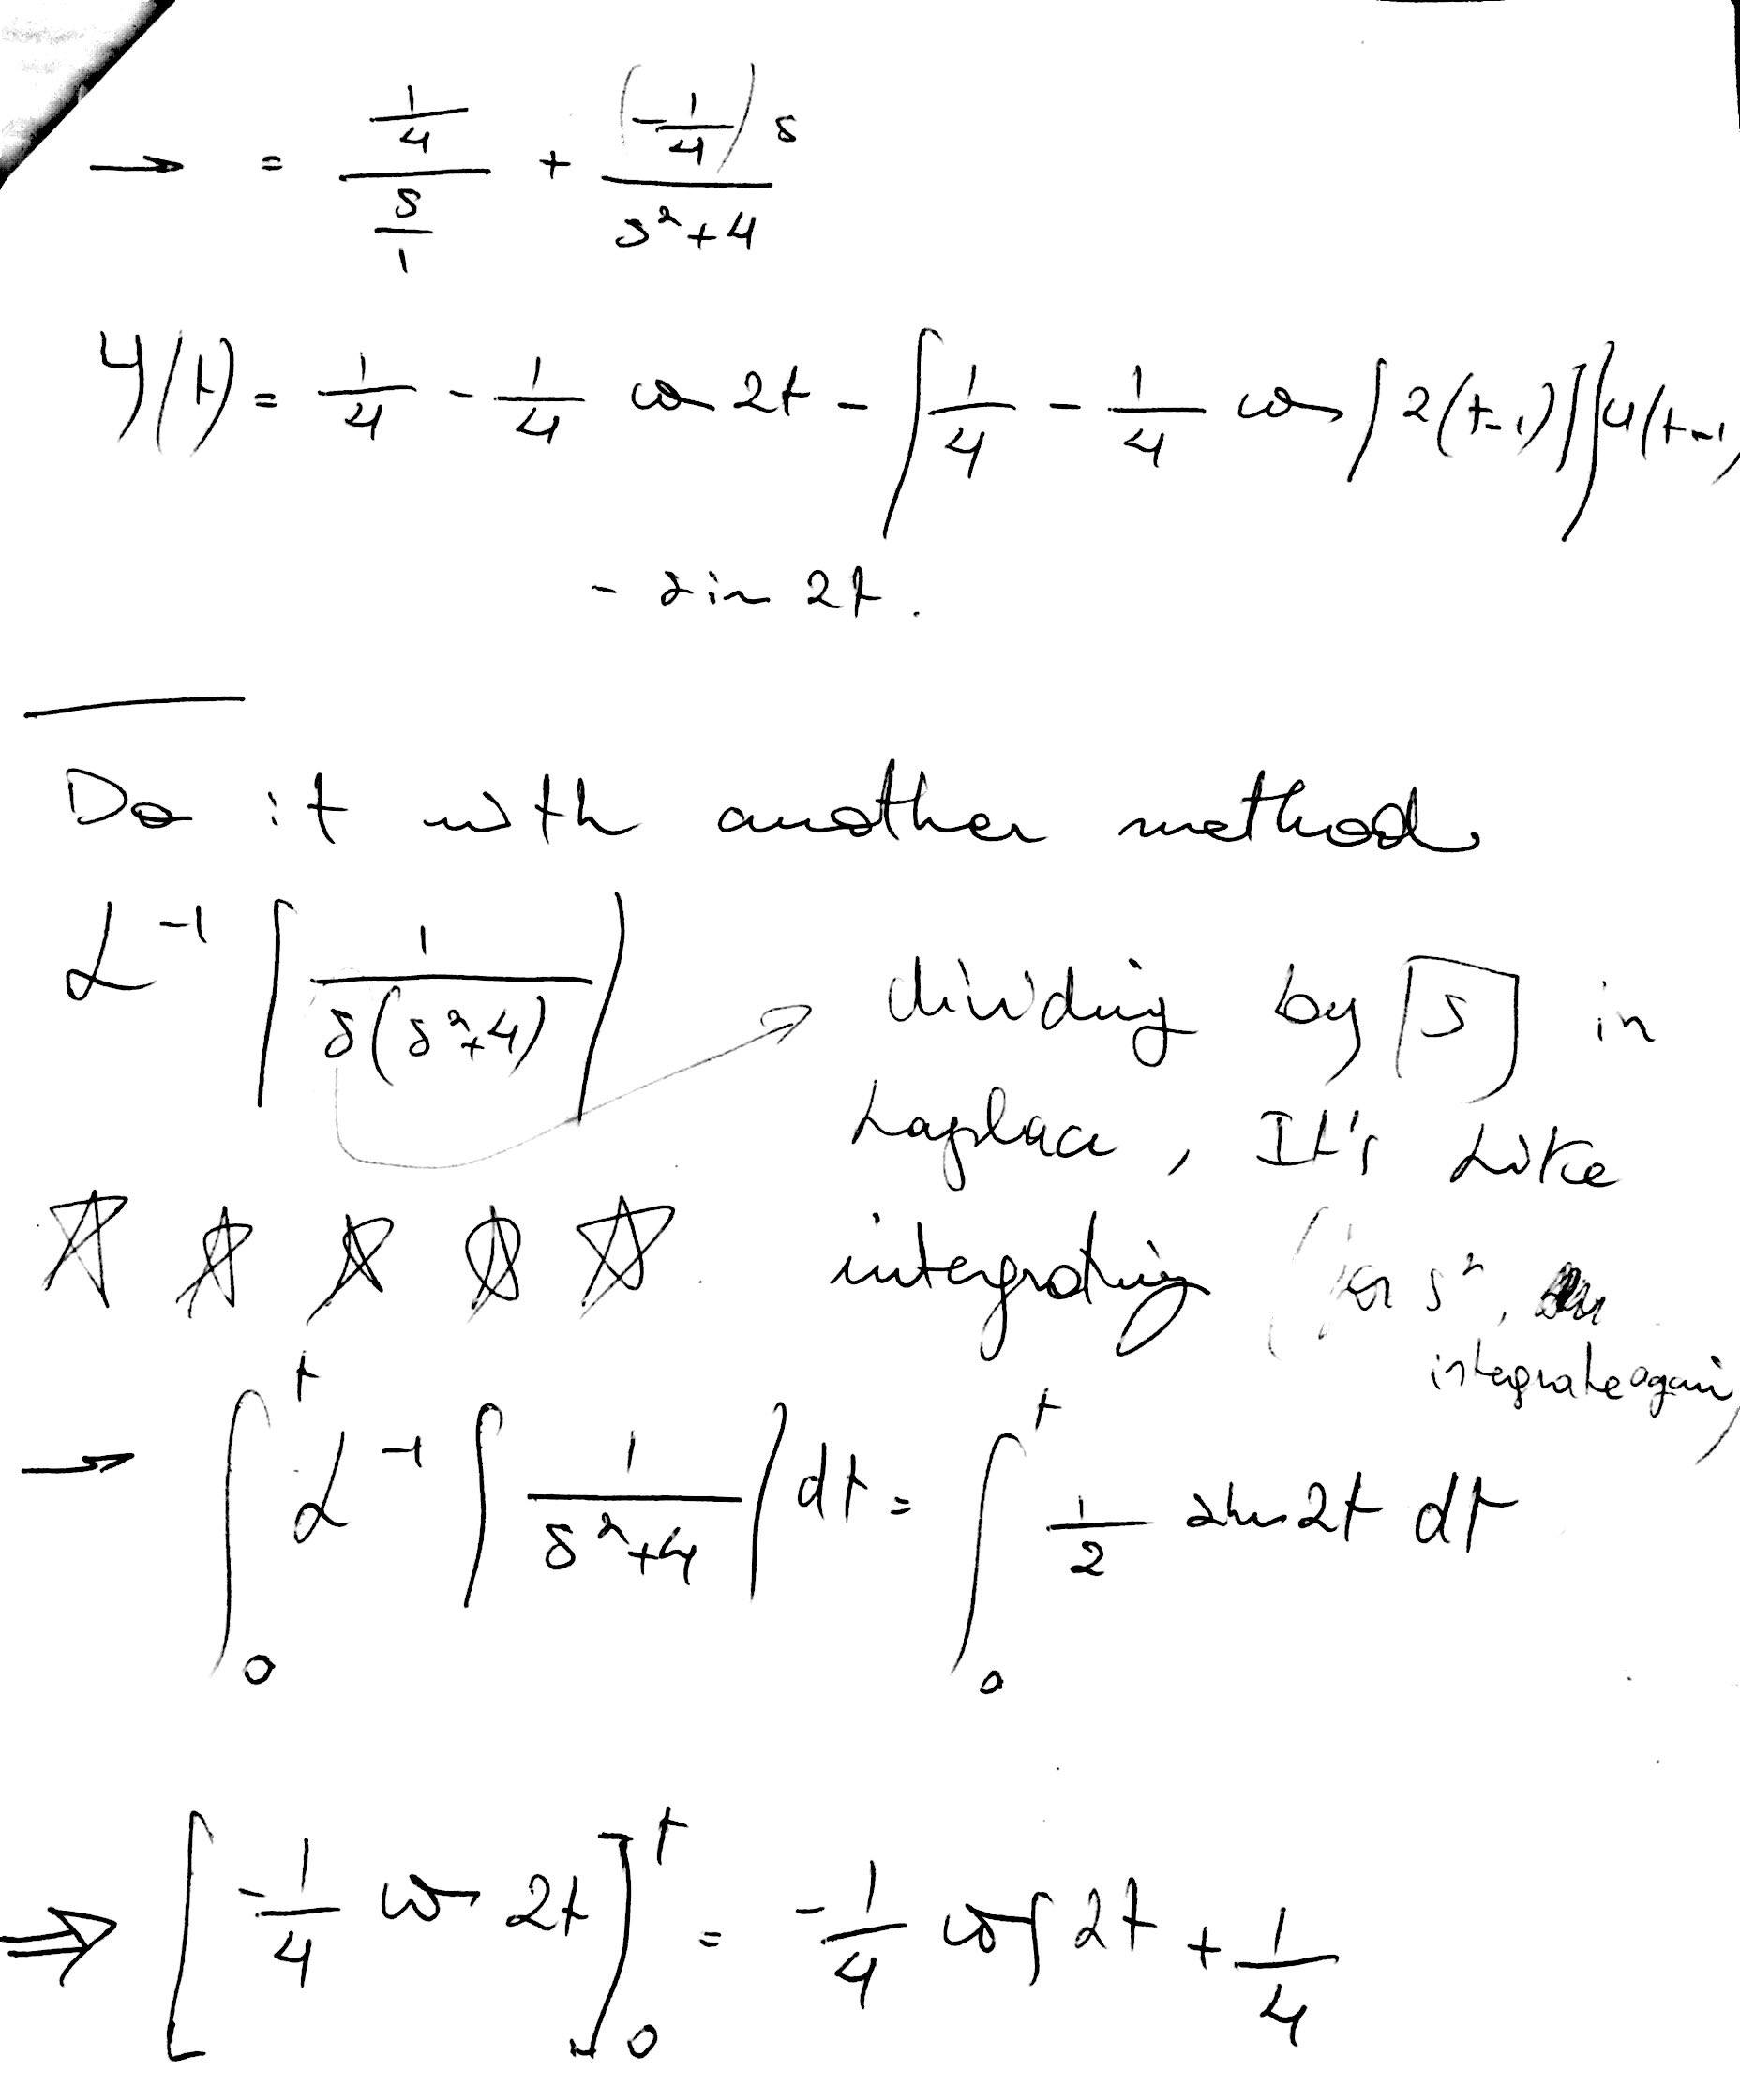 → = (1/4)/(s/1) + (-1/4)s/(s²+4)
y(t) = 1/4 - 1/4 cos 2t - [1/4 - 1/4 cos [2(t-1)]] u(t-1)
- sin 2t.
Do it with another method
L⁻¹ [1/(s(s²+4))] → dividing by [s] in
Laplace, It's Like
☆ ☆ ☆ ☆ ☆ intergrating (for s²,
integrate again)
→ ∫₀ᵗ L⁻¹ [1/(s²+4)] dt = ∫₀ᵗ 1/2 sin 2t dt
⇒ [-1/4 cos 2t]₀ᵗ = -1/4 cos 2t + 1/4